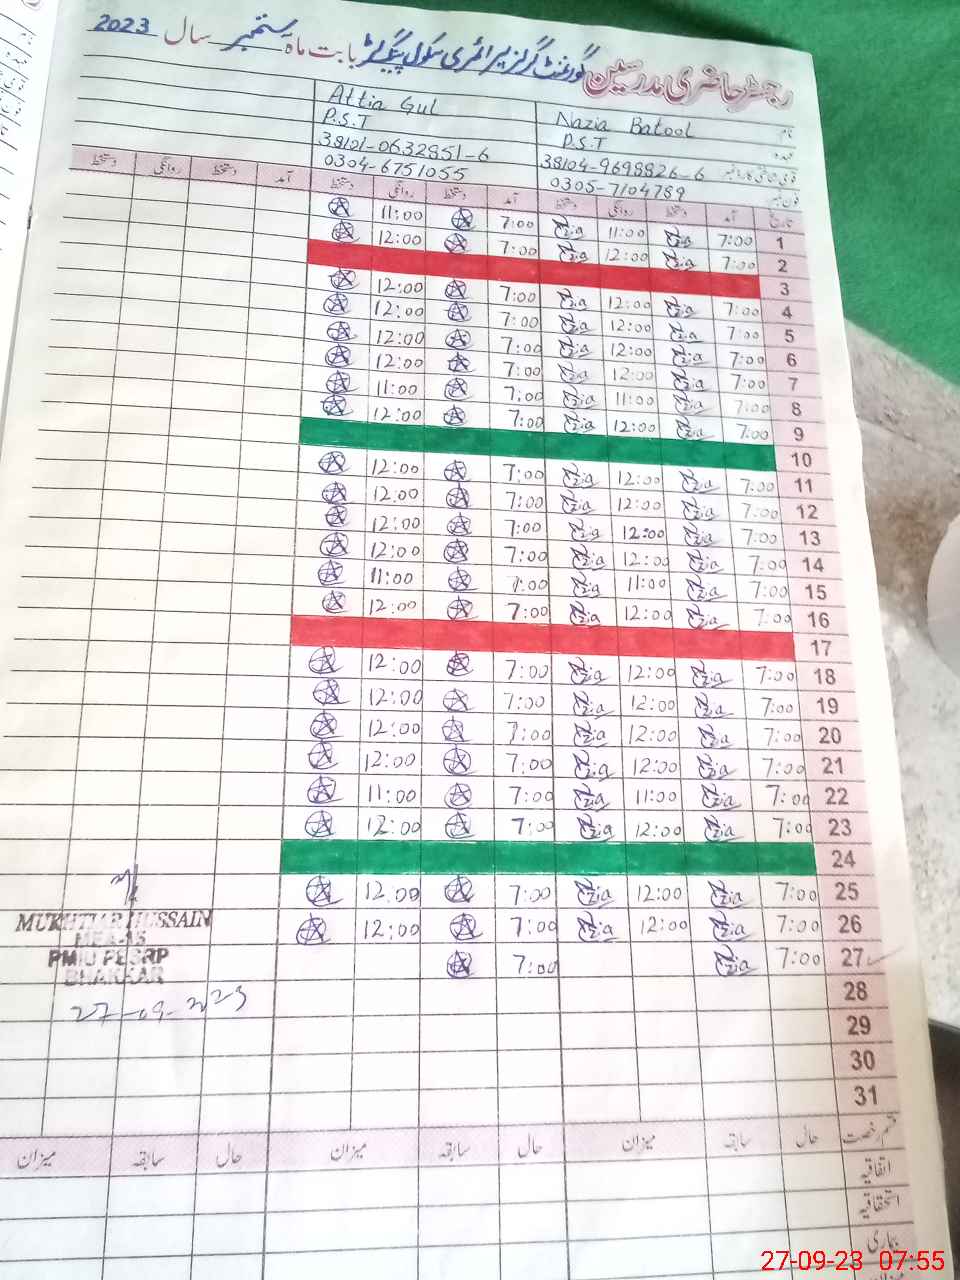 رجسٹر حاضری مدرسین گورنمنٹ گرلز پرائمری سکول بابت ماہ ستمبر سال 2023
نام Nazia Batool Attia Gul
عہدہ P.S.T P.S.T
قومی شناختی کارڈ نمبر 38104-9698826-6 38101-0632851-6
فون نمبر 0305-7104789 0304-6751055
تاریخ آمد دستخط روانگی دستخط آمد دستخط روانگی دستخط آمد دستخط روانگی دستخط
1 7:00 11:00 7:00 11:00
2 7:00 12:00 7:00 12:00
3
4 7:00 12:00 7:00 12:00
5 7:00 12:00 7:00 12:00
6 7:00 12:00 7:00 12:00
7 7:00 12:00 7:00 12:00
8 7:00 11:00 7:00 11:00
9 7:00 12:00 7:00 12:00
10
11 7:00 12:00 7:00 12:00
12 7:00 12:00 7:00 12:00
13 7:00 12:00 7:00 12:00
14 7:00 12:00 7:00 12:00
15 7:00 11:00 7:00 11:00
16 7:00 12:00 7:00 12:00
17
18 7:00 12:00 7:00 12:00
19 7:00 12:00 7:00 12:00
20 7:00 12:00 7:00 12:00
21 7:00 12:00 7:00 12:00
22 7:00 11:00 7:00 11:00
23 7:00 12:00 7:00 12:00
24
25 7:00 12:00 7:00 12:00
26 7:00 12:00 7:00 12:00
27 7:00 7:00
28
29
30
31
MUKHTIAR HUSSAIN
PMIU PESRP
BHAKKAR
27-09-2023
قسم رخصت حال سابقہ میزان حال سابقہ میزان حال سابقہ میزان
اتفاقیہ
استحقاقیہ
بیماری
27-09-23 07:55